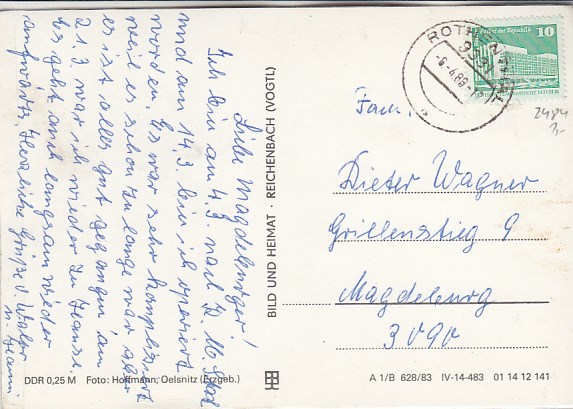 Liebe Magdeburger!
Ich bin am 4.3. nach K. M. Stadt
und am 14.3. bin ich operiert
worden. Es war sehr kompliziert
weil es schon zu lange war aber
es ist alles gut gegangen am
21.3. war ich wieder zu Hause.
Es geht auch langsam wieder
aufwärts. Herzliche Grüße v. Walor
u. Hanni
DDR 0,25 M Foto: Hoffmann, Oelsnitz (Erzgeb.)
BILD UND HEIMAT · REICHENBACH (VOGTL)
ROTHENTHAL
-6.-4.89-
10
Palast der Republik
2484
3,-
Fam.
Dieter Wagner
Grillenstieg 9
Magdeburg
3090
A 1/B 628/83 IV-14-483 01 14 12 141